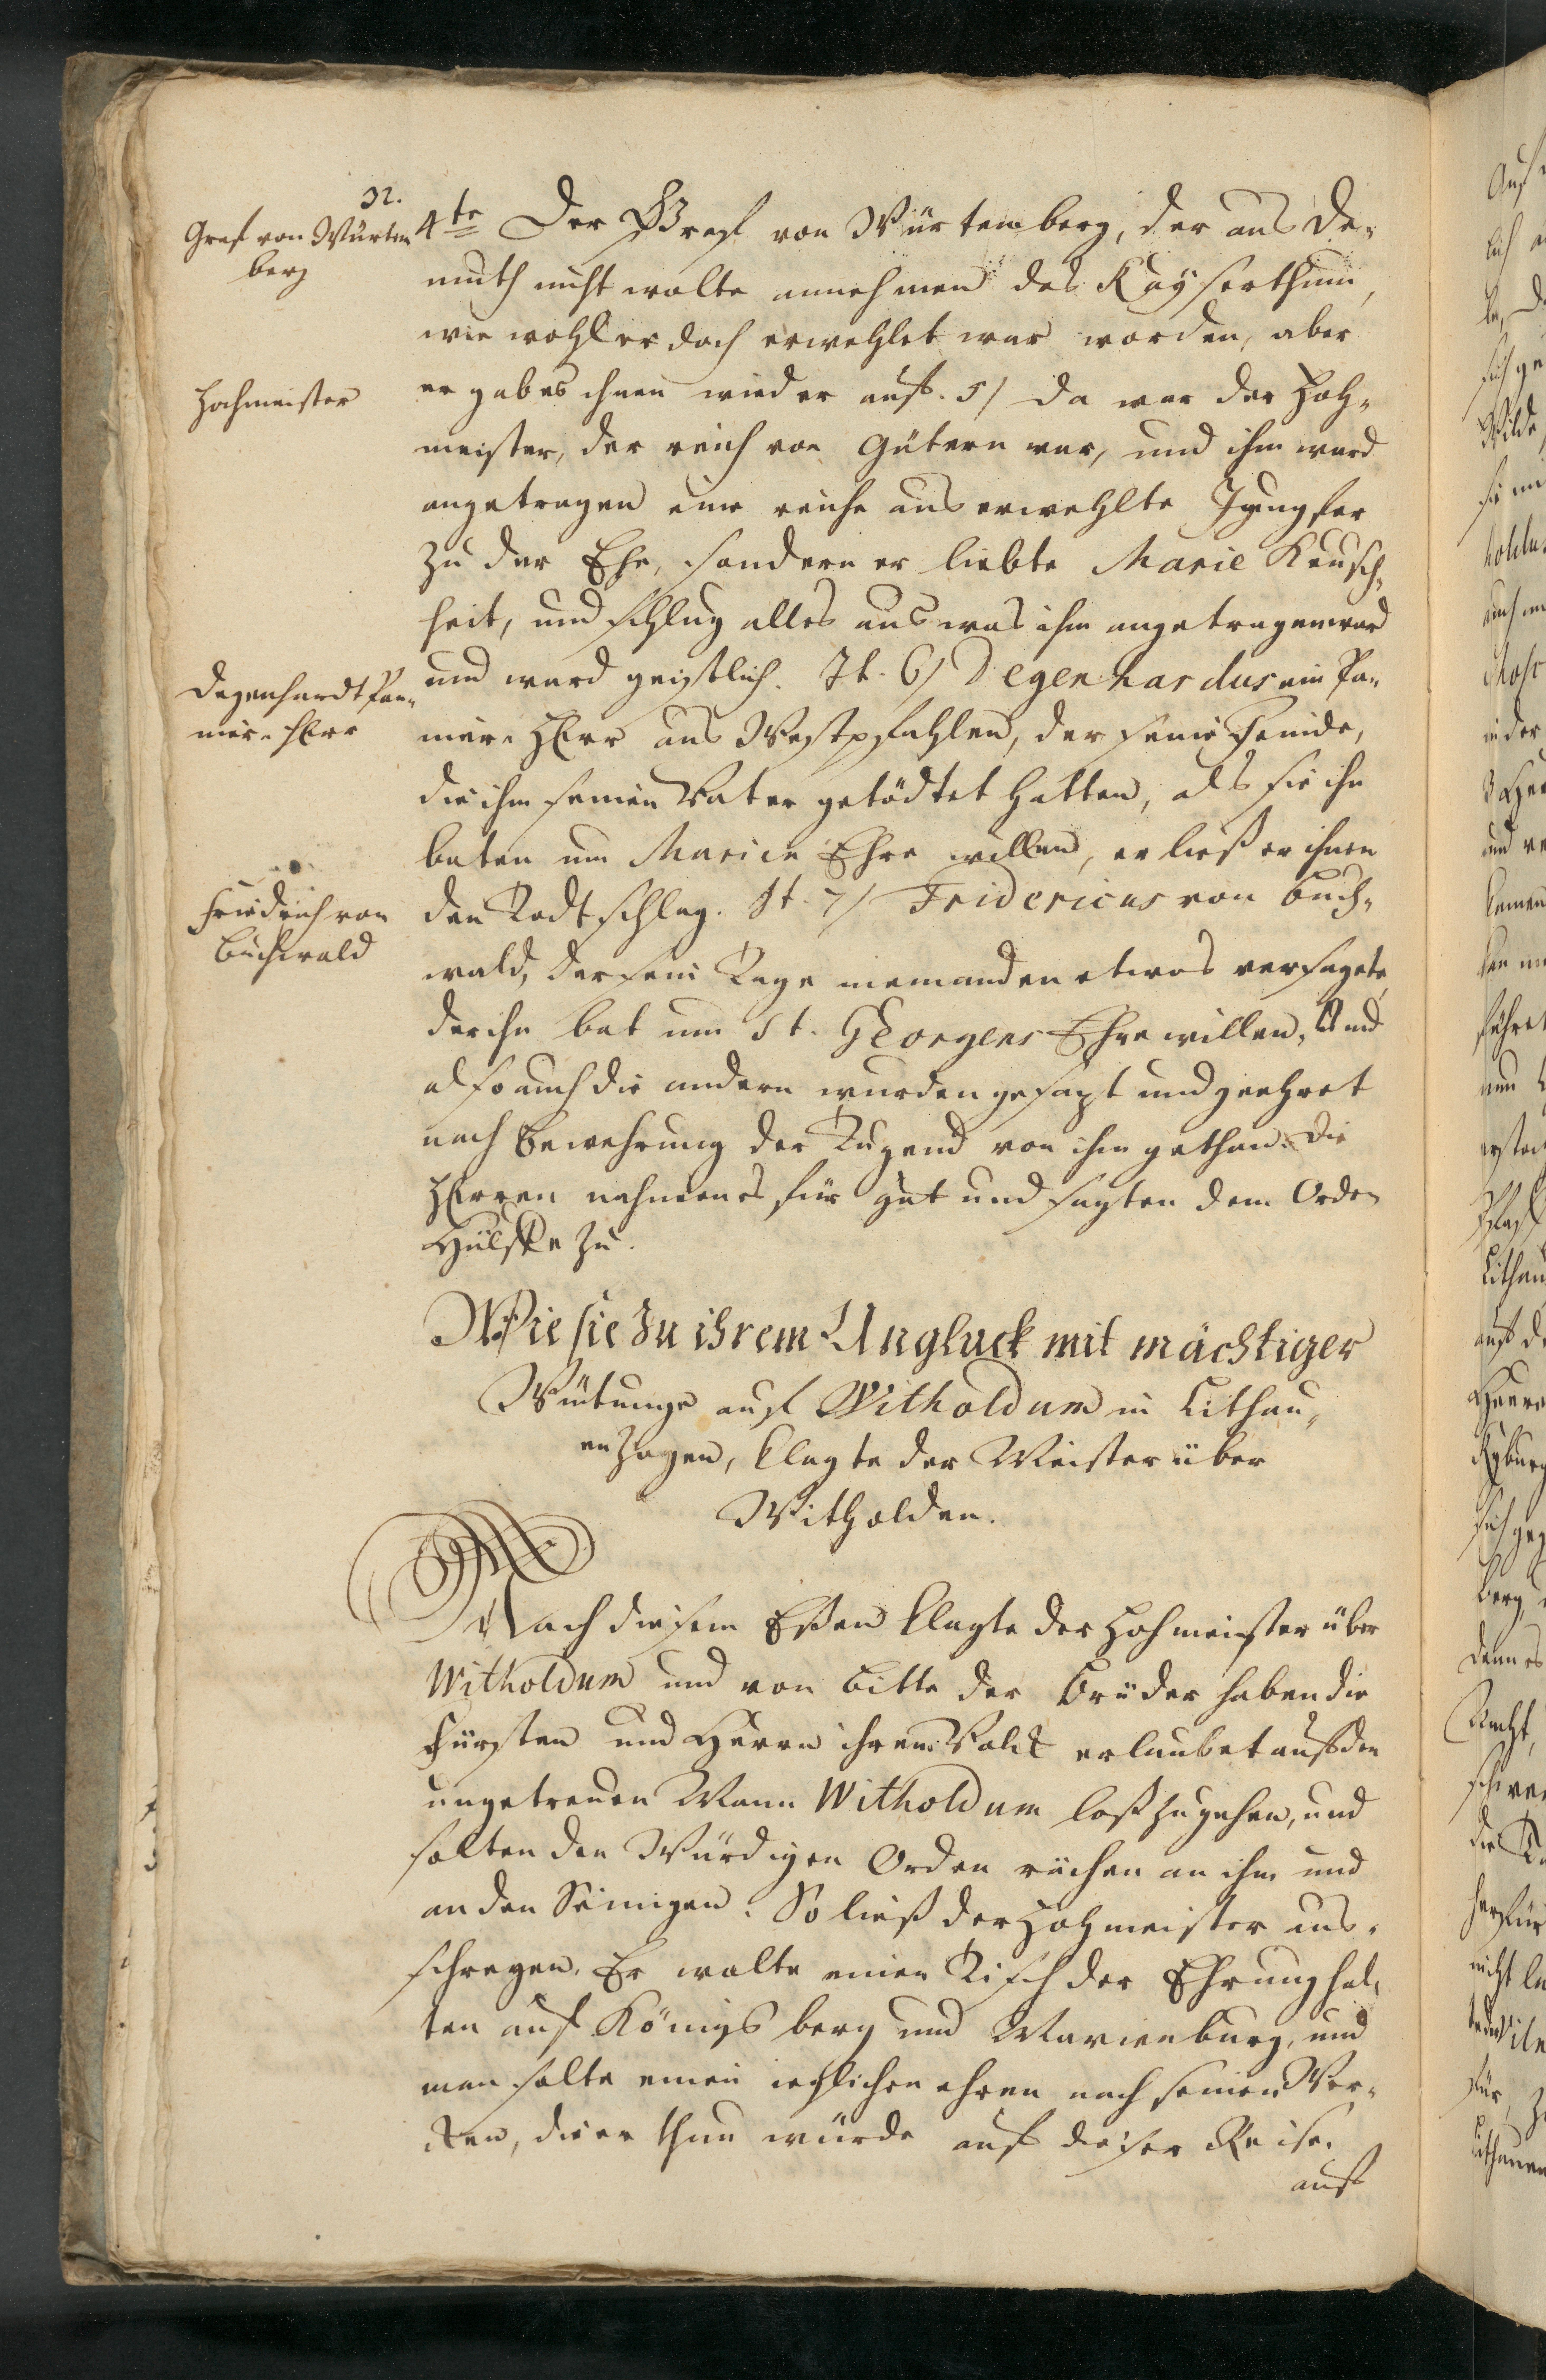 32.
Graf von Würtem
berg
4te Der Graf von Würtemberg, der aus De-
muth nicht wolte annehmen das Kayserthum,
wie wohl er doch erwehlet war worden, aber
Hochmeister
er gab es ihnen wieder auf. 5/ Da war der Hoh-
meister, der reich von Gütern war, und ihm ward
angetragen eine reiche auserwehlte Jungfer
zu der Ehe, sondern er liebte Marie Keusch-
heit, und schlug alles aus was ihm angetragen ward
Degenhardt Pan-
nier-Herr
und ward geistlich. It. 6/ Degenhardus ein Pa-
nier-Herr aus Westpfahlen, der seine Feinde,
die ihm seinen Vater getödtet hatten, als sie ihn
baten um Marien Ehre willen, er ließ er ihnen
Friedrich von
Buchwald
den Todtschlag. It. 7/ Fridericus von Buch-
wald, der sein Tage niemanden etwas versagete,
der ihn bat um St. Georgens Ehre willen, Und
also auch die andern wurden gesazt und geehret
nach Bewehrung der Tugend von ihm gethan. Die
Herren nahmen es für gut und sagten dem Orden
Hülffe zu.
Wie sie zu ihrem Ungluck mit mächtiger
Wütunge auf Witholdum in Lithau-
en zogen, klagte der Meister über
Witholden.
Nach diesem Eßen klagte der Hohmeister über
Witholdum und von Bitte der Brüder haben die
Fürsten und Herrn ihrem Volck erlaubet auf den
ungetreuen Mann Witholdum loß zugehen, und
solten den Würdigen Orden rächen an ihm und
an den Seinigen. So ließ der Hohmeister aus-
schreyen, Er wolte einen Tisch der Ehrung hal-
ten auf Königsberg und Marienburg, und
man solte einen ieglichen ehren nach seinen Wer-
cken, die er thun würde auf dieser Reise.
auf